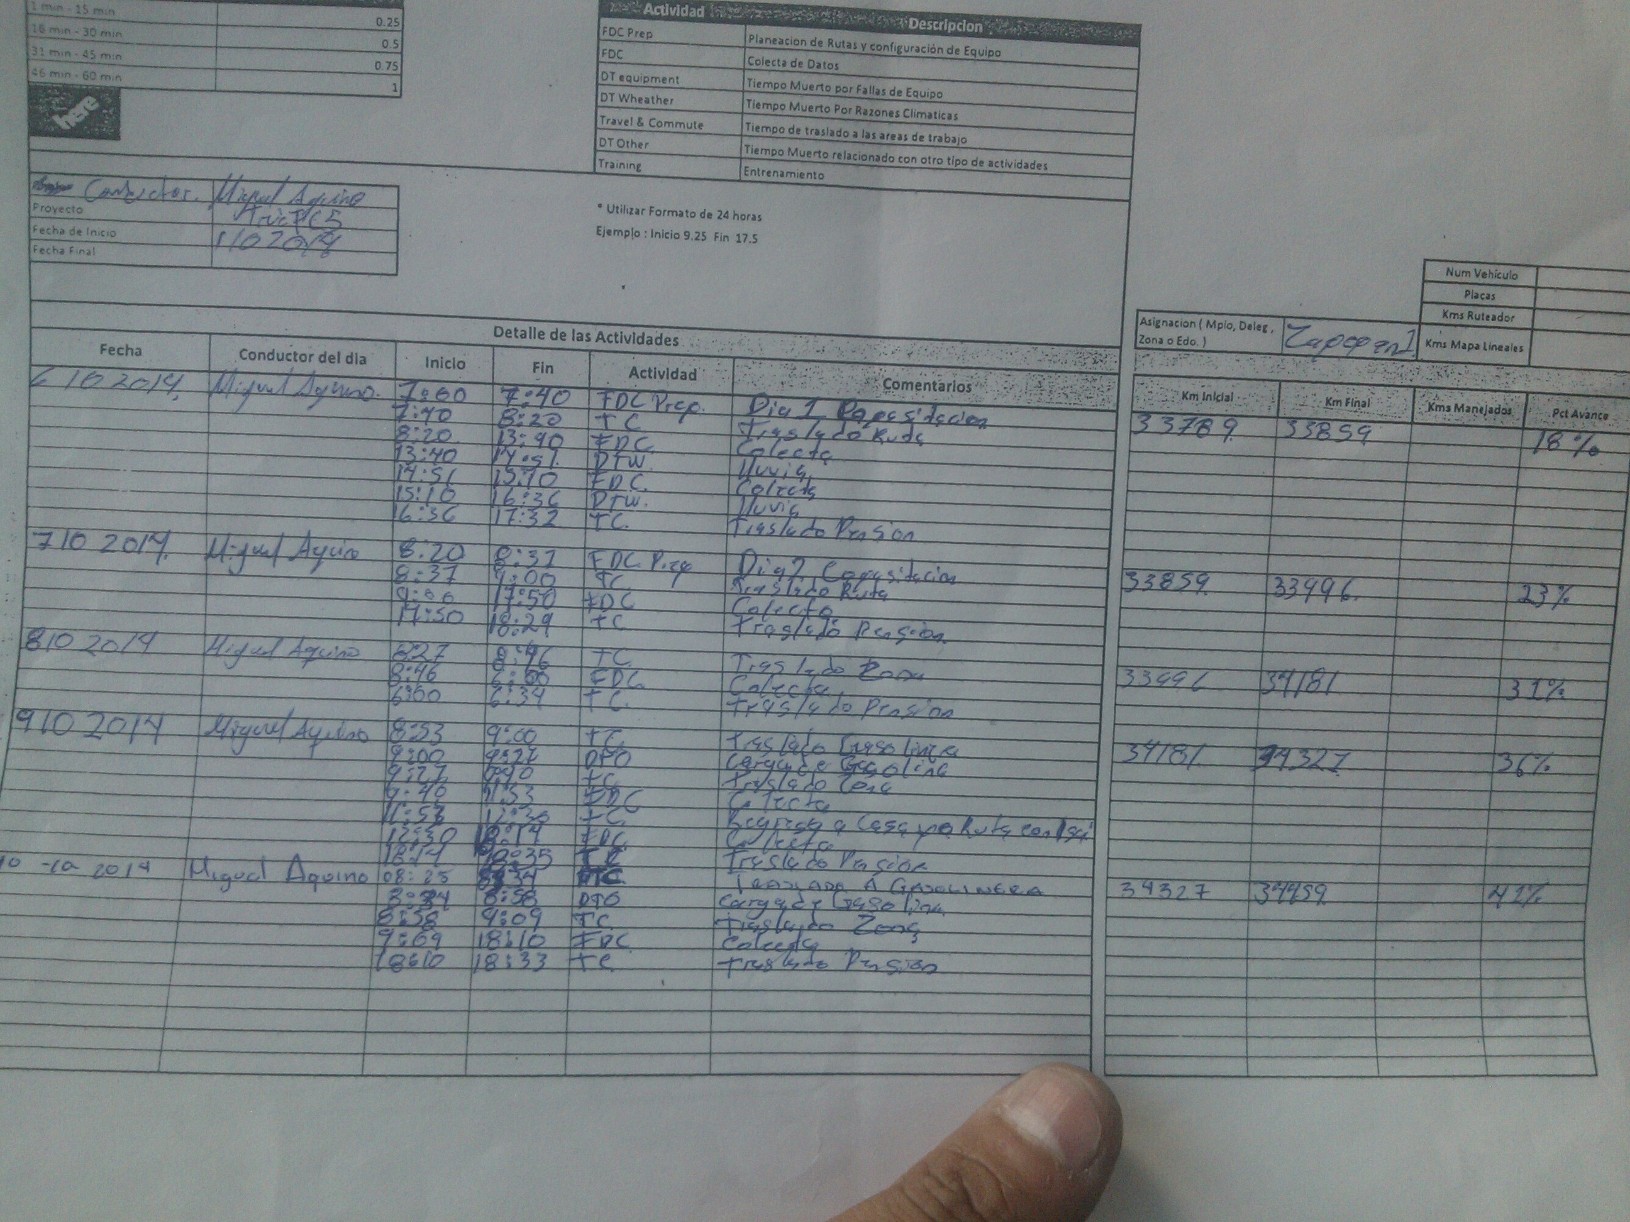 1 min - 15 min 0.25
16 min - 30 min 0.5
31 min - 45 min 0.75
46 min - 60 min 1
here
Actividad Descripcion
FDC Prep Planeacion de Rutas y configuración de Equipo
FDC Colecta de Datos
DT equipment Tiempo Muerto por Fallas de Equipo
DT Wheather Tiempo Muerto Por Razones Climaticas
Travel & Commute Tiempo de traslado a las areas de trabajo
DT Other Tiempo Muerto relacionado con otro tipo de actividades
Training Entrenamiento
Conductor. Miguel Aquino
Proyecto
Fecha de Inicio
Fecha Final
* Utilizar Formato de 24 horas
Ejemplo : Inicio 9.25 Fin 17.5
Num Vehículo
Placas
Kms Ruteador
Kms Mapa Lineales
Asignacion ( Mpio, Deleg , Zona o Edo. ) Zapopan 1
Detalle de las Actividades
Fecha Conductor del dia Inicio Fin Actividad Comentarios Km Inicial Km Final Kms Manejados Pct Avance
6 10 2014. Miguel Aquino. 7:00 7:40 FDC Prep. Dia 1 33789 33859 18%
7:40 8:20 TC Traslado Ruta
8:20 13:40 FDC Colecta
13:40 14:51 DTW lluvia
14:51 15:10 FDC. Colecta
15:10 16:36 DTW. lluvia
16:36 17:32 TC. Traslado Pension
7 10 2014. Miguel Aquino 8:20 8:37 FDC. Prep Dia 2 33859 33996 23%
8:37 9:00 TC Traslado Ruta
9:00 17:50 FDC Colecta
17:50 18:29 TC Traslado Pension
8 10 2014 Miguel Aquino 8:27 8:46 TC Traslado Zona 33996 34181 31%
8:46 6:00 FDC Colecta
6:00 6:34 TC. Traslado Pension
9 10 2014 Miguel Aquino 8:53 9:00 TC Traslado Gasolinera 34181 34327 36%
9:00 9:27 DTO Carga de Gasolina
9:27 9:40 TC Traslado Zona
9:40 11:53 FDC Colecta
11:53 12:30 TC Regreso a Casa
12:30 18:14 FDC Colecta
18:14 18:35 TC Traslado Pension
10 - 10 2014 Miguel Aquino 08:25 8:34 TC TRASLADO A GASOLINERA 34327 34459 41%
8:34 8:58 DTO Carga de Gasolina
8:58 9:09 TC Traslado Zona
9:09 18:10 FDC Colecta
18:10 18:33 TC Traslado Pension